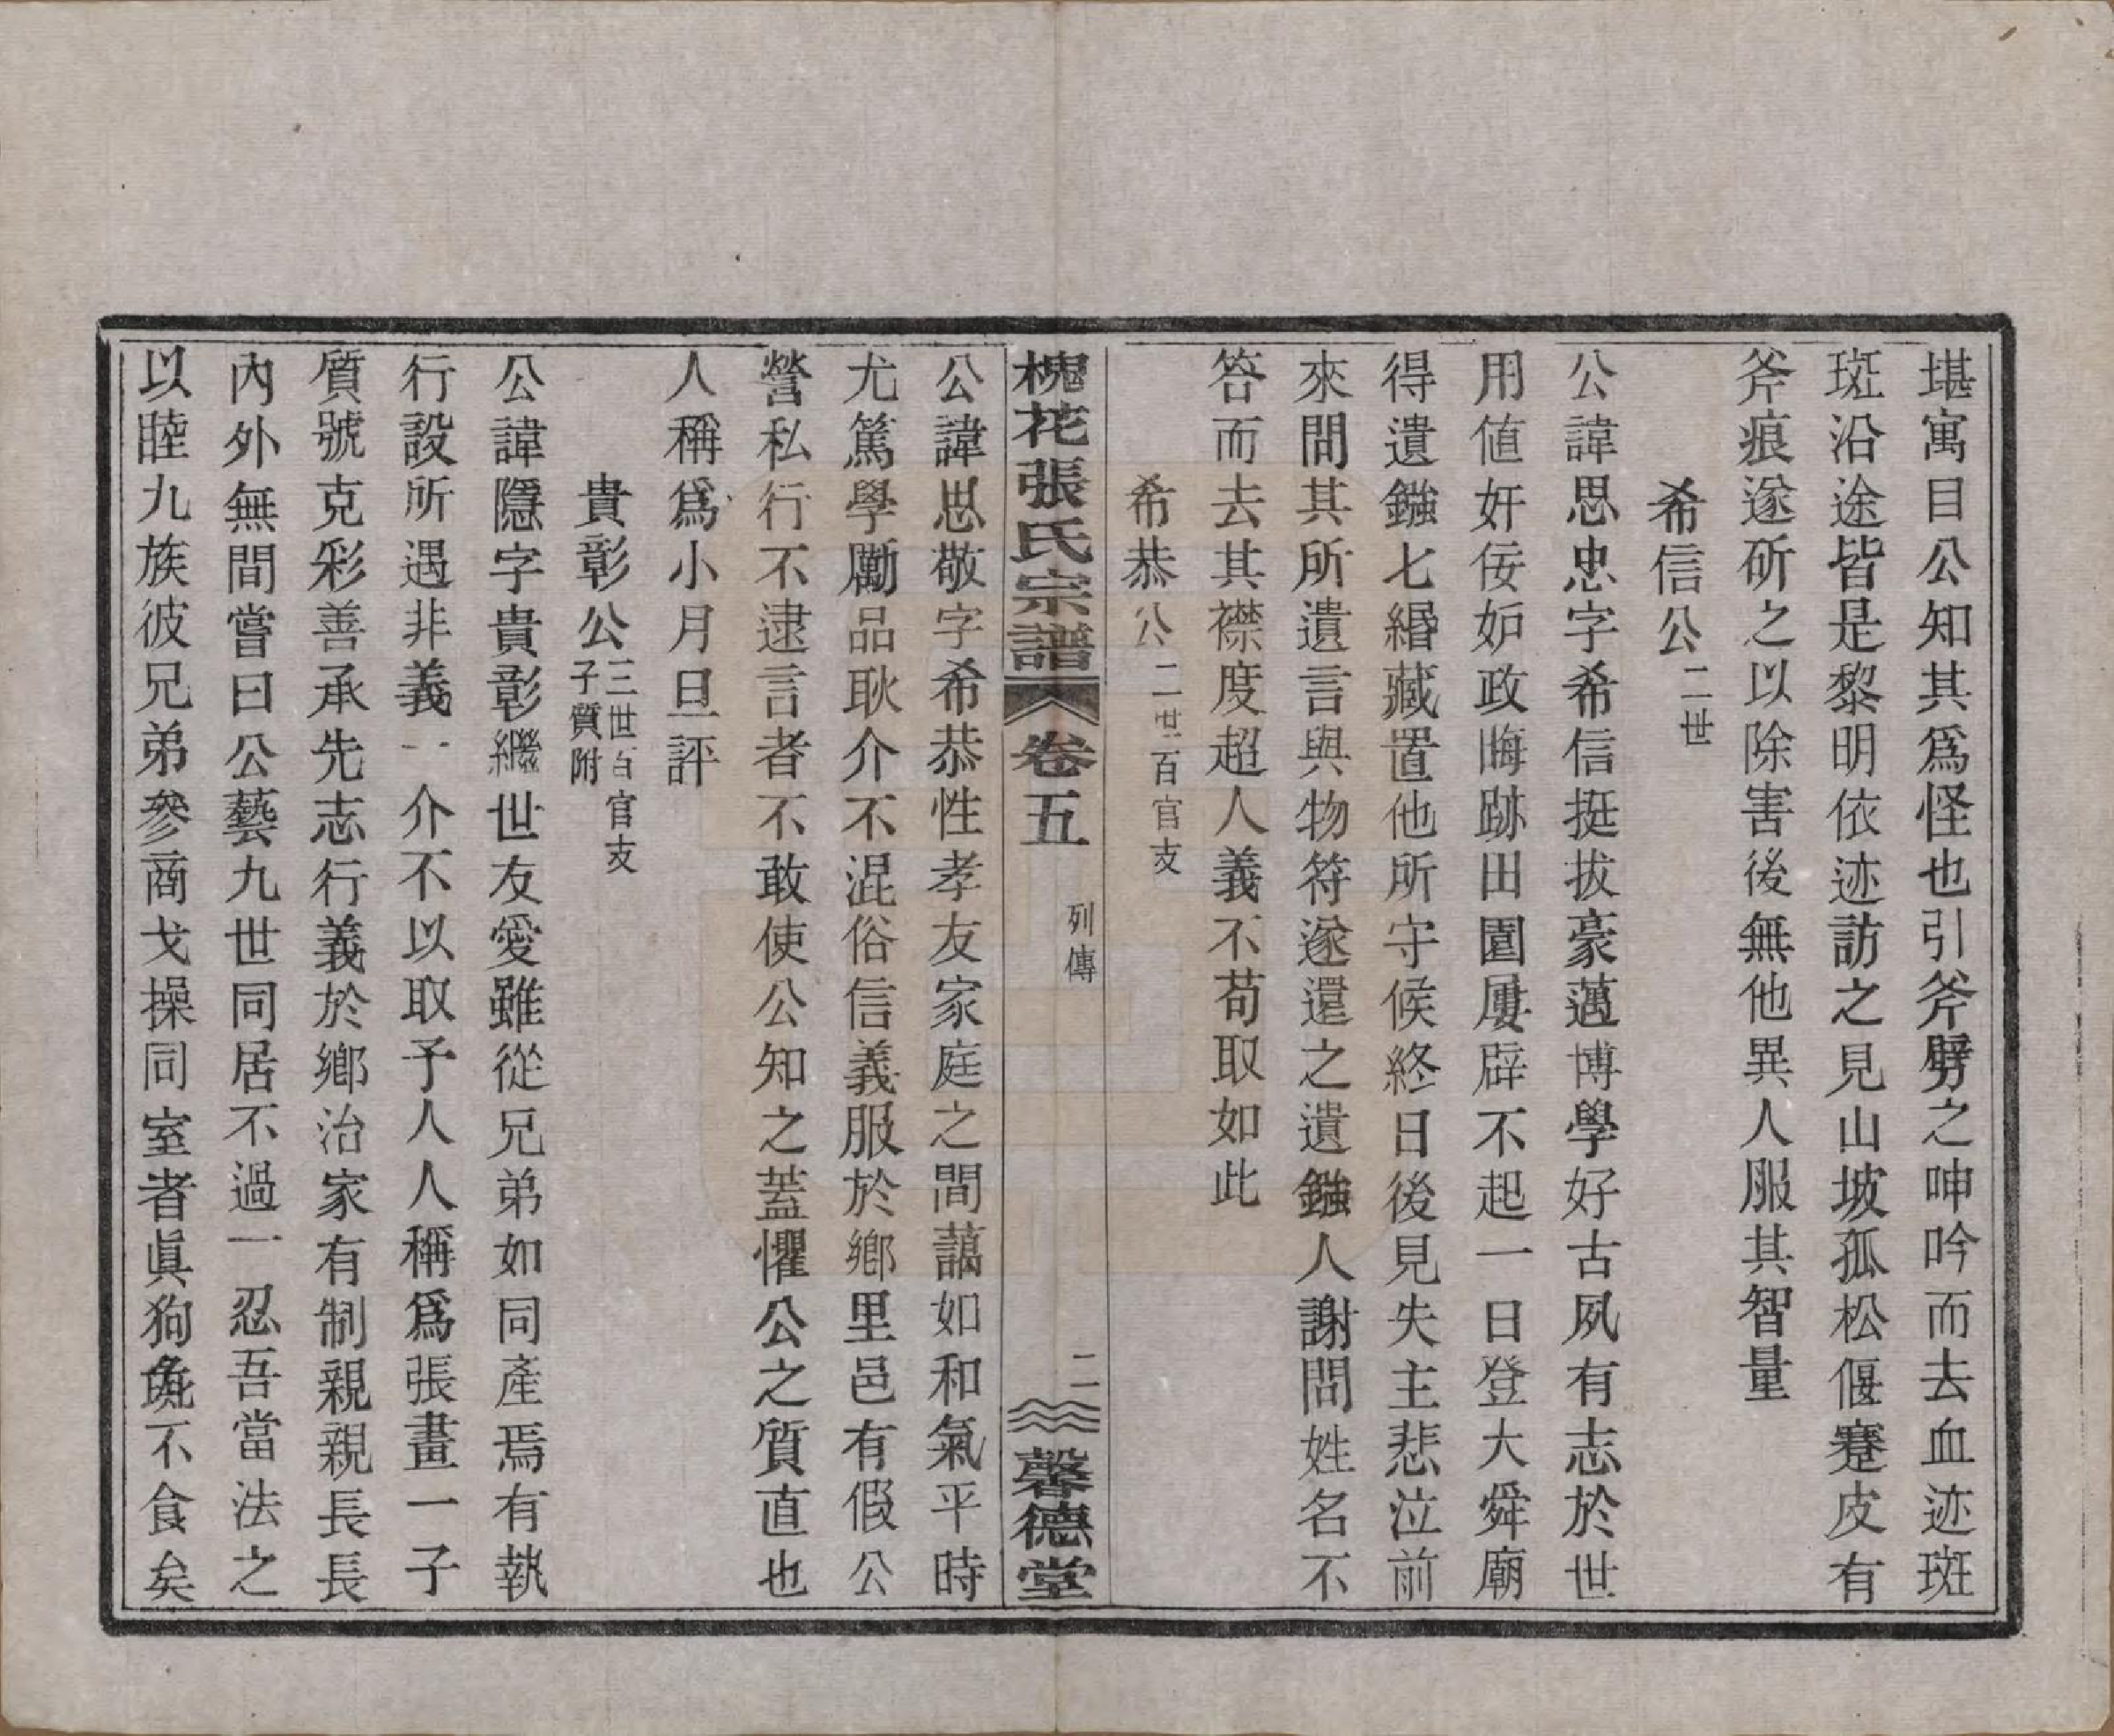 堪寓目公知其爲怪也引斧劈之呻吟而去血迹斑
斑沿途皆是黎明依迹訪之見山坡孤松偃蹇皮有
斧痕遂斫之以除害後無他異人服其智量
希信公二世
公諱思忠字希信挺拔豪邁博學好古夙有志於世
用値奸佞妒政晦跡田園屢辟不起一日登大舜廟
得遺鏹七緡藏置他所守候終日後見失主悲泣前
來問其所遺言與物符遂還之遺鏹人謝問姓名不
答而去其襟度超人義不苟取如此
希恭公二世百官支
槐花張氏宗譜 卷五 列傳 二 馨德堂
公諱思敬字希恭性孝友家庭之間藹如和氣平時
尤篤學勵品耿介不混俗信義服於鄕里邑有假公
營私行不逮言者不敢使公知之蓋懼公之質直也
人稱爲小月旦評
貴彰公三世百官支子質附
公諱隱字貴彰繼世友愛雖從兄弟如同產焉有執
行設所遇非義一介不以取予人人稱爲張畫一子
質號克彩善承先志行義於鄕治家有制親親長長
內外無間嘗曰公藝九世同居不過一忍吾當法之
以睦九族彼兄弟參商戈操同室者眞狗彘不食矣